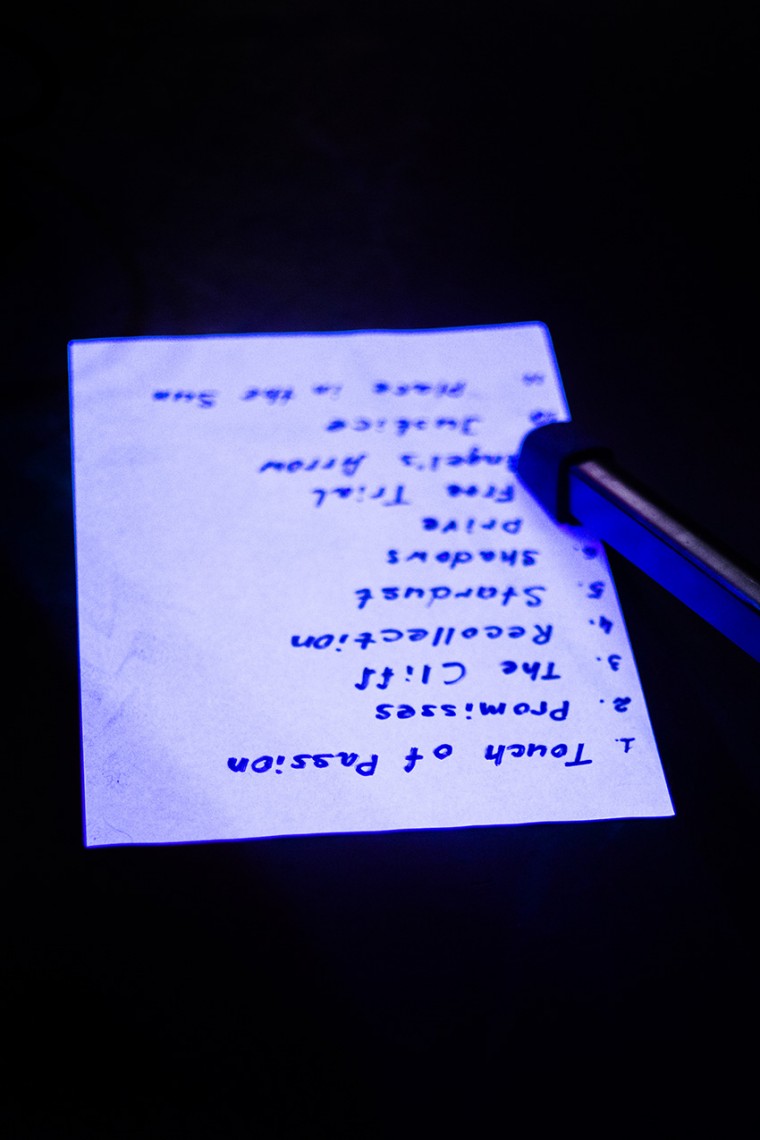 1. Touch of Passion
2. Promisses
3. The Cliff
4. Recollection
5. Stardust
6. Shadows
Drive
Free Trial
Angel's Arrow
10 Justice
11 Place in the Sun